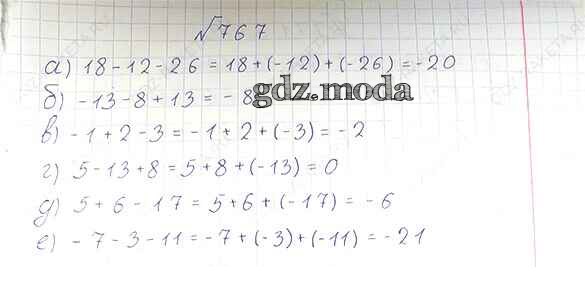 №767
а) 18-12-26 = 18+(-12)+(-26) = -20
б) -13-8+13 = -8
gdz.moda
в) -1+2-3 = -1+2+(-3) = -2
г) 5-13+8 = 5+8+(-13) = 0
д) 5+6-17 = 5+6+(-17) = -6
е) -7-3-11 = -7+(-3)+(-11) = -21